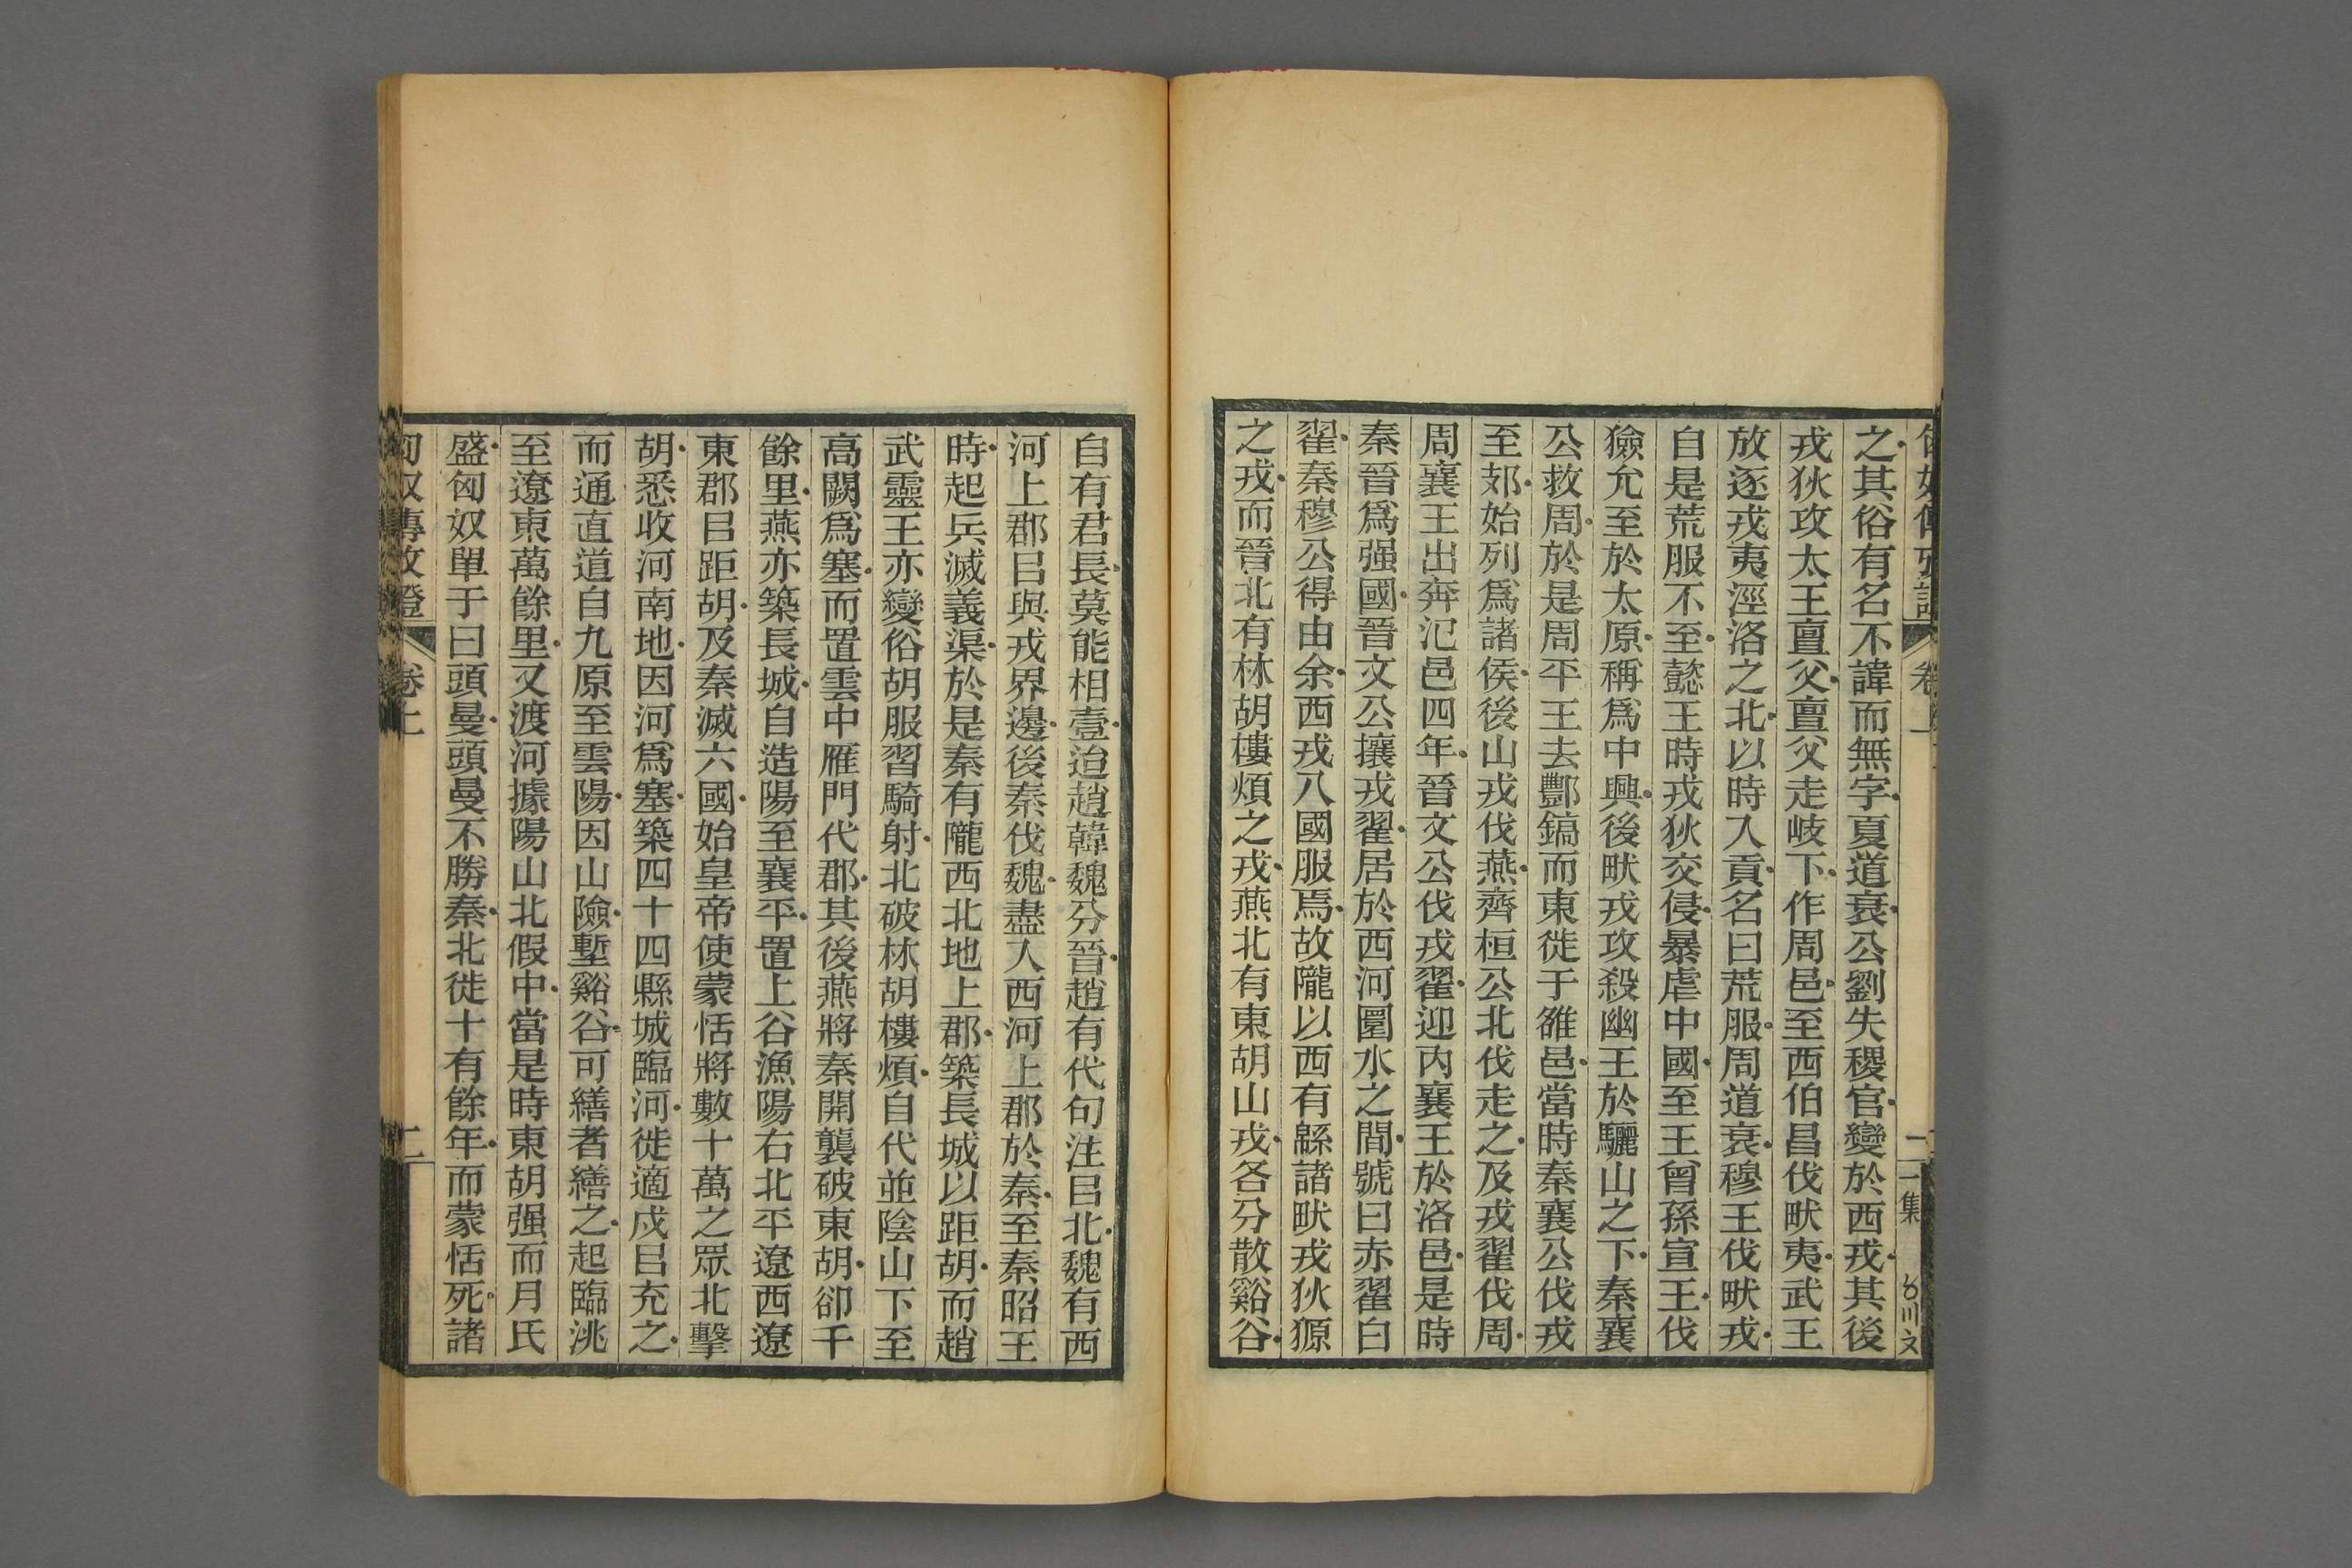 之其俗有名不諱而無字夏道衰公劉失稷官變於西戎其後
戎狄攻太王亶父亶父走岐下作周邑至西伯昌伐畎夷武王
放逐戎夷涇洛之北以時入貢名曰荒服周道衰穆王伐畎戎
自是荒服不至懿王時戎狄交侵暴虐中國至王曾孫宣王伐
獫允至於太原稱爲中興後畎戎攻殺幽王於驪山之下秦襄
公救周於是周平王去酆鎬而東徙于雒邑當時秦襄公伐戎
至郊始列爲諸侯後山戎伐燕齊桓公北伐走之及戎翟伐周
周襄王出奔氾邑四年晉文公伐戎翟迎內襄王於洛邑是時
秦晉爲强國晉文公攘戎翟居於西河圁水之間號曰赤翟白
翟秦穆公得由余西戎八國服焉故隴以西有緜諸畎戎狄獂
之戎而晉北有林胡樓煩之戎燕北有東胡山戎各分散谿谷
自有君長莫能相壹迨趙韓魏分晉趙有代句注㠯北魏有西
河上郡㠯與戎界邊後秦伐魏盡入西河上郡於秦至秦昭王
時起兵滅義渠於是秦有隴西北地上郡築長城以距胡而趙
武靈王亦變俗胡服習騎射北破林胡樓煩自代並陰山下至
高闕爲塞而置雲中雁門代郡其後燕將秦開襲破東胡卻千
餘里燕亦築長城自造陽至襄平置上谷漁陽右北平遼西遼
東郡㠯距胡及秦滅六國始皇帝使蒙恬將數十萬之眾北擊
胡悉收河南地因河爲塞築四十四縣城臨河徙適戍㠯充之
而通直道自九原至雲陽因山險塹谿谷可繕者繕之起臨洮
至遼東萬餘里又渡河據陽山北假中當是時東胡强而月氏
盛匈奴單于曰頭曼頭曼不勝秦北徙十有餘年而蒙恬死諸
匈奴傳攷證 卷上 二